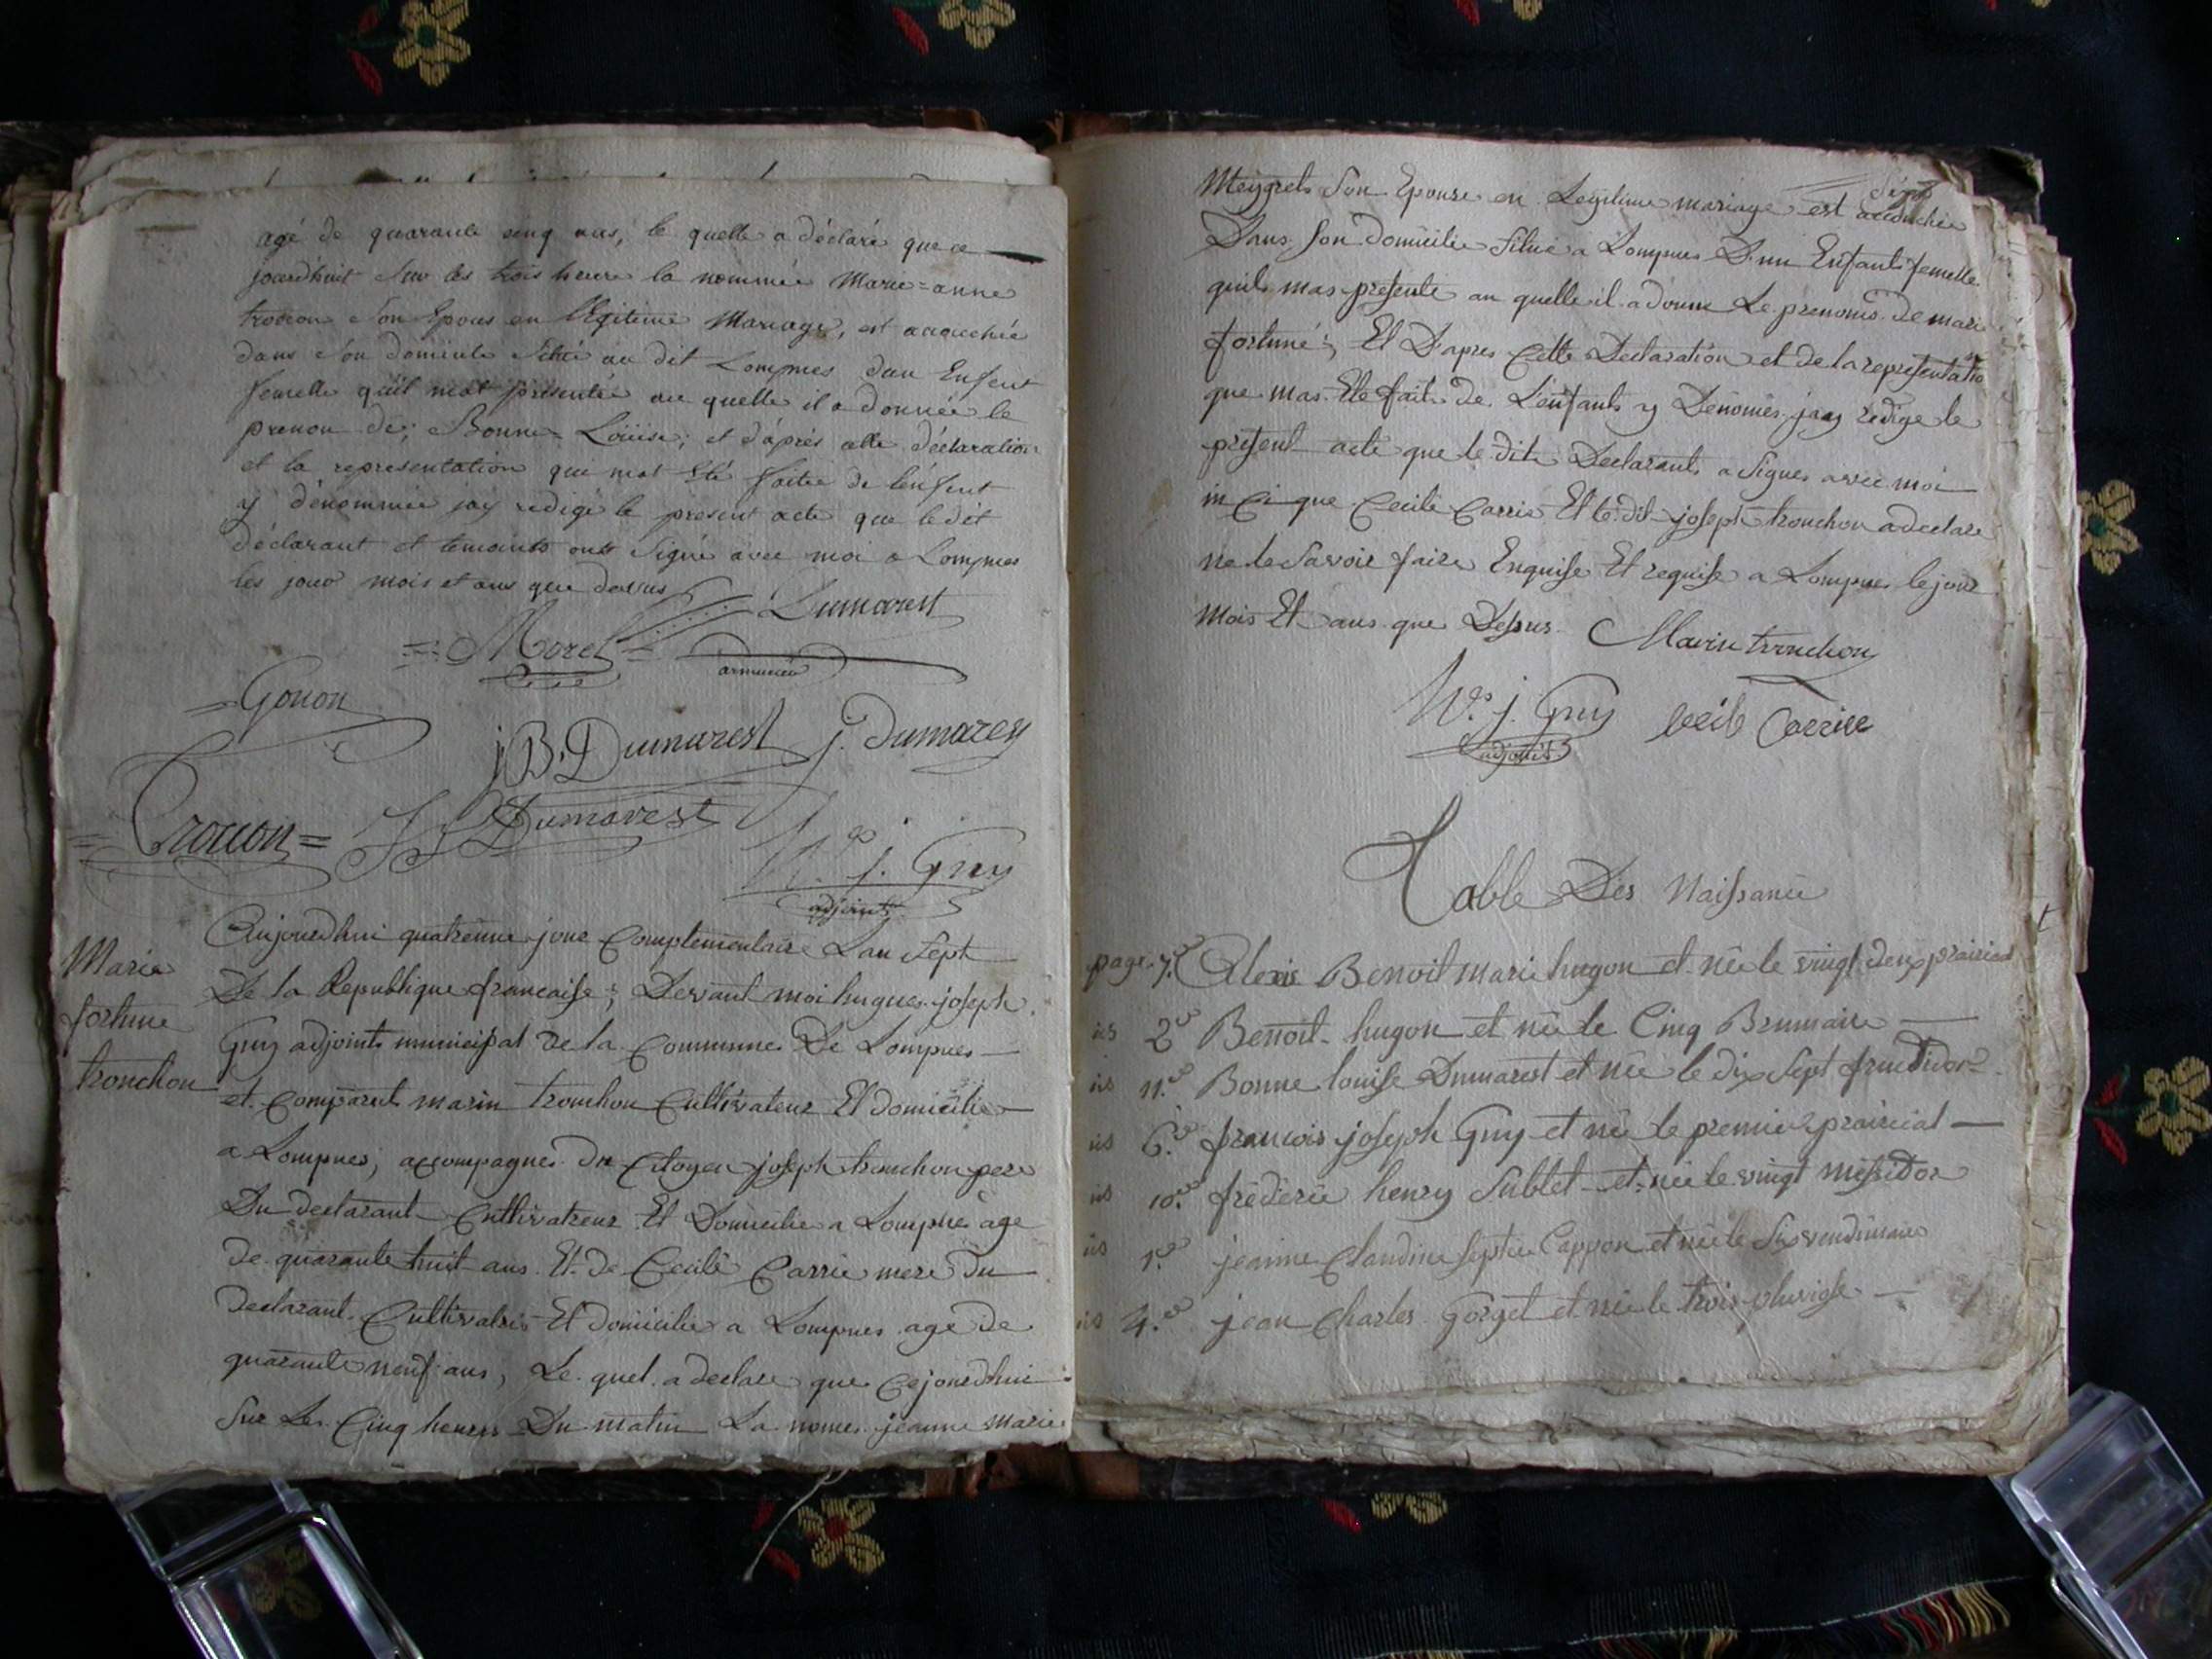 agé de quarante cinq ans, le quelle a déclaré que ce
jourdhuit sur les trois heure la nommée Marie=anne
trocon son Epous en légitime Mariage, est accouchée
dans son domicile situé au dit Lompnes dun Enfent
femelle quil mat présentée au quelle il a donnée le
prenon de; Bonne=Loüise; et d'aprés cette déclaration
et la representation qui mat été faite de lenfent
y dénommée jay redigé le present acte que ledit
déclarant et temoints ont signé avec moi a Lompnes
les jour mois et ans que dessus
Dumarest
=Morel=
armurier
=Gonon
jB. Dumarest j. Dumarest
=Trocon= JJ Dumarest
h. j. Guy
adjoint
Marie
fortune
tronchon
Aujourdhui quatrieme jour Complementaire Lan sept
De la Republique francaise; Devant moi hugues joseph
Guy adjoints municipal De la Commune De Lompnes
et comparut marin tronchon Cultivateur Et domicilie
a Lompnes; accompagnés du citoyen joseph tronchon pere
Du declarant Cultivateur Et Domicilie a Lompnes age
de quarante huit ans Et de Cecile Carrie mere du
Declarant Cultivatris Et domicilie a Lompnes age de
quarante neuf ans, Le quel a declare que cejourdhui
Sur Les Cinq heures Du matin La nomes jeanne marie
Meygret Son Epouse en Legitime mariage est accouchée
Dans son domicilie situé a Lompnes D'un Enfants femelle
quil mas presente au quelle il a donne Le prenoms de marie
fortuné; Et D'apres Cette Declaration et de la representatio
que mas Ete fait de L'enfants y Denomés jay redige le
present acte que le dit Declarants a signes avec moi
in Ci que Cecile Carrie Et le dit joseph tronchon a declare
ne le savoir faire Enquise Et requise a Lompnes le jour
Mois Et ans que Dessus Marin tronchon
h. j. Guy Cecile Carrier
adjoint
Table Des Naissance
page 7. Alexis Benoit marie hugon et née le vingt deux prairial
2 Benoit hugon et née le Cinq Brumaire
11. Bonne louise Dumarest et née le dix sept fructidor
6. francois joseph Guy et né le premier prairial
10. fréderic henry Sublet et née le vingt messidor
1. jeanne Claudine Cappon et née le six vendimaire
4. jean Charles Gorget et née le trois pluviose